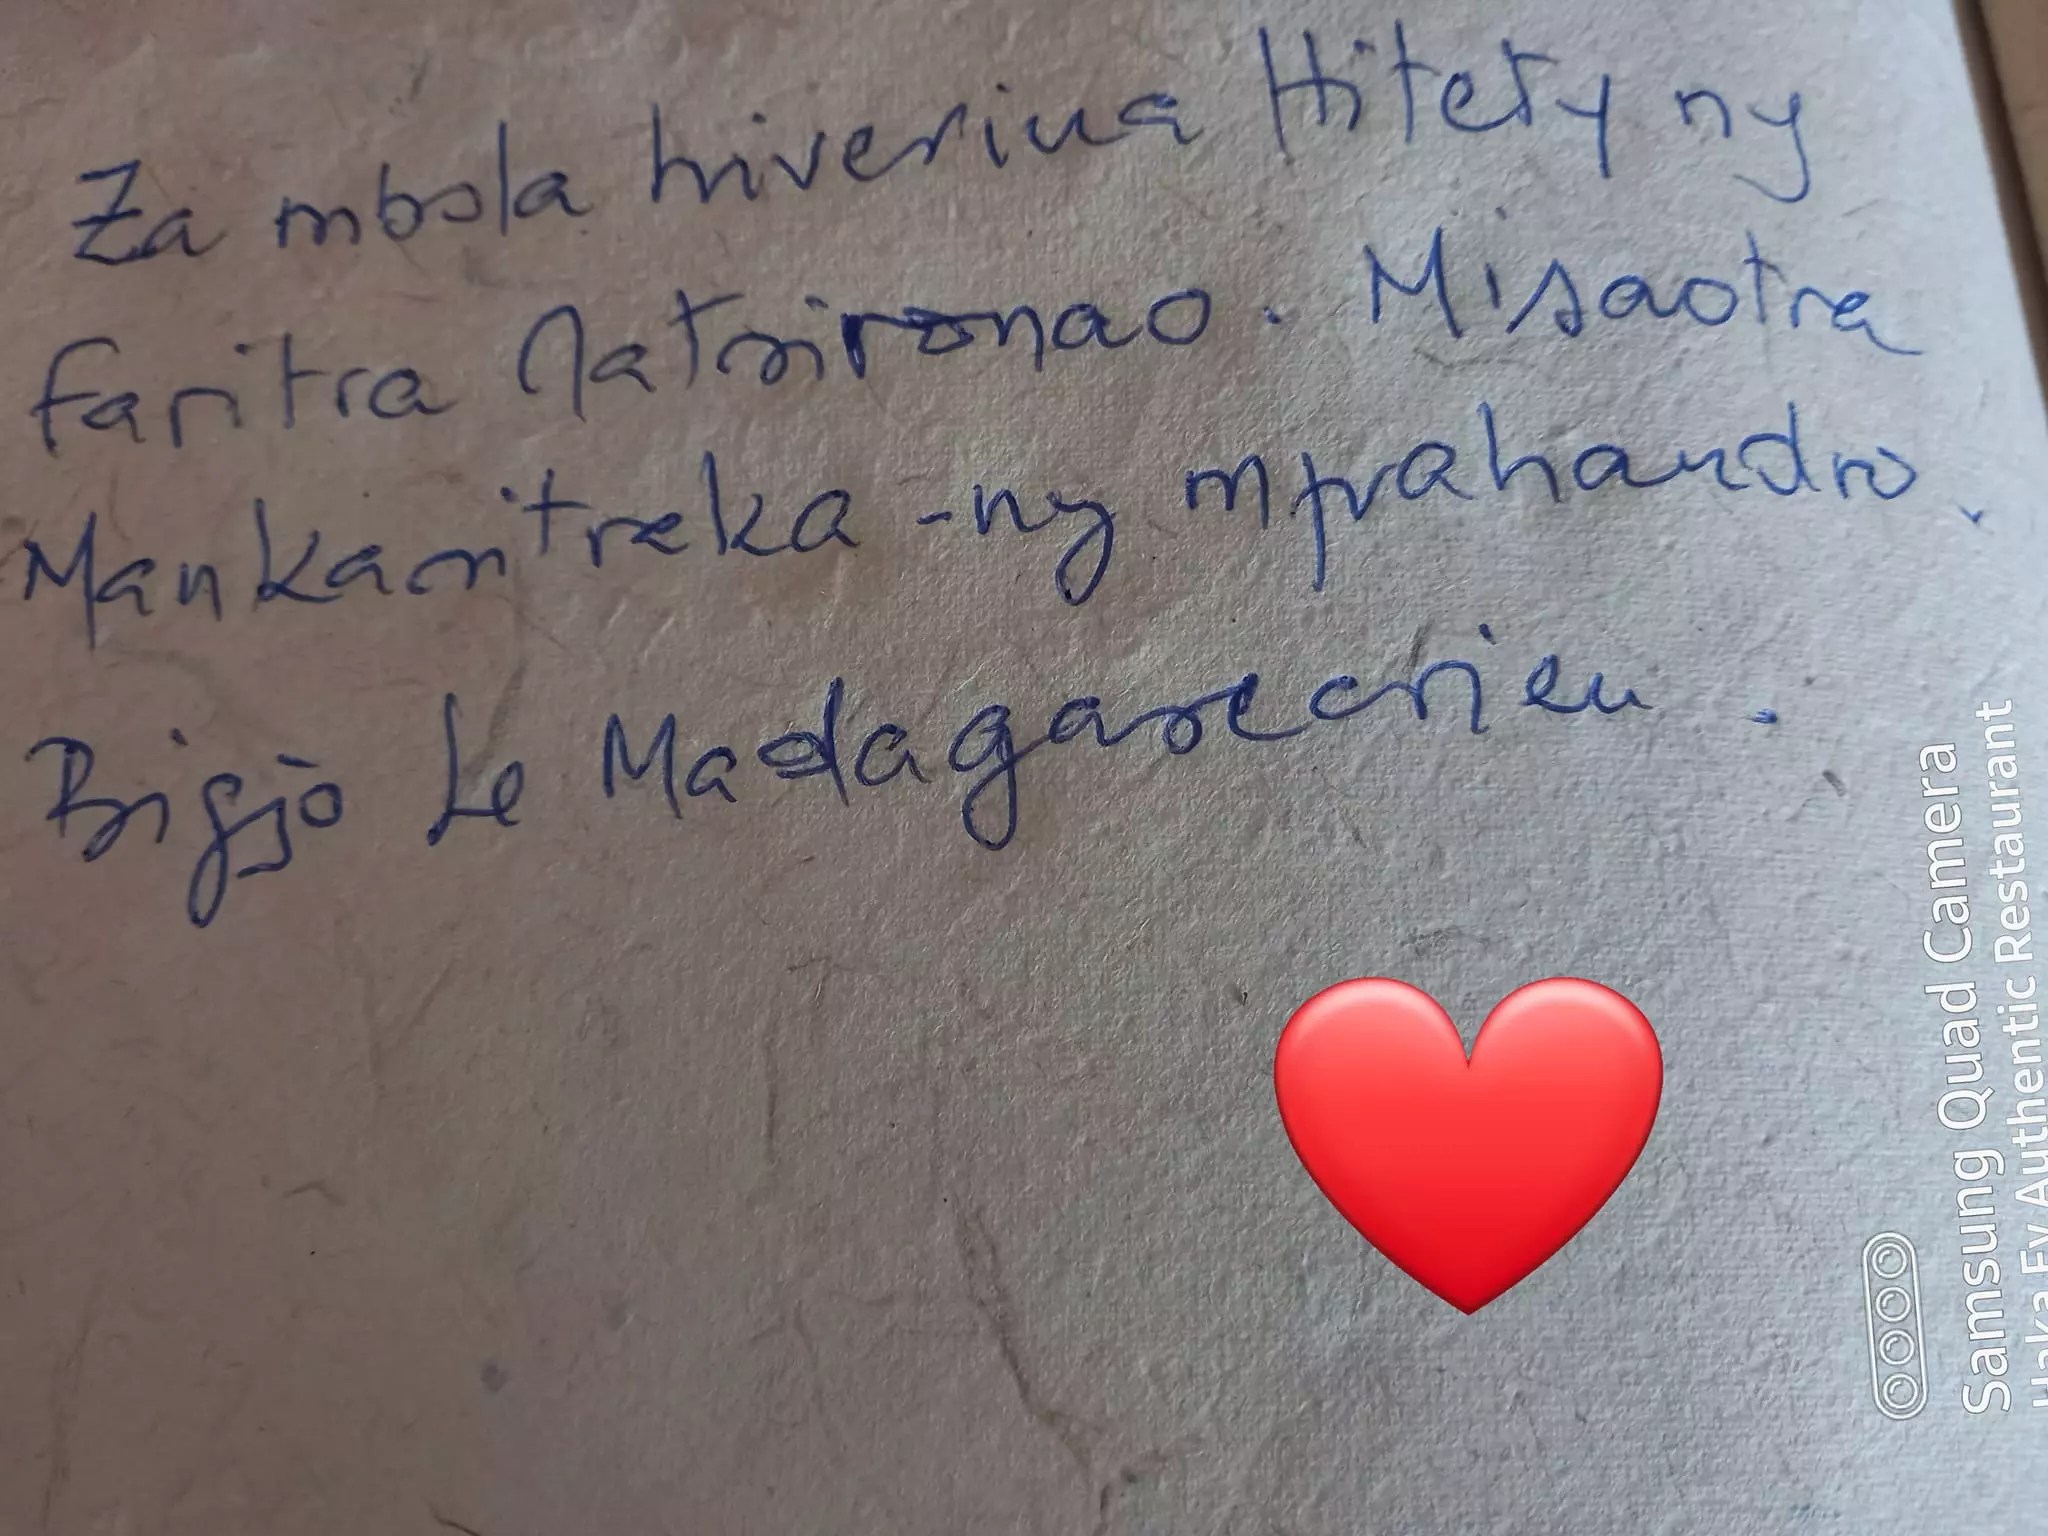 Za mbola hiverina Hitety ny
faritra natsironao. Misaotra
Mankasitreka - ny mpahandro.
Bigjo Le Madagascarien.
Samsung Quad Camera
Authentic Restaurant